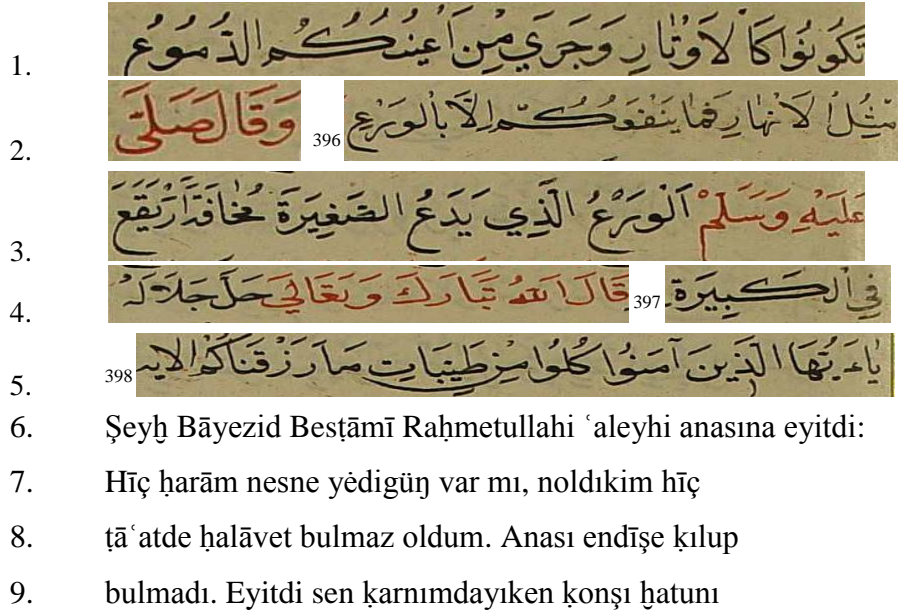 1. تَكُونُوا كَا لاَوْتَارِ وَجَرَي مِنْ اَعْيُنِكُمُ الدُّمُوعُ
2. مِثْلُ اْلاَنْهَارِ فَمَا يَنْفَعُكُمْ اِلَّا بِالْوَرَعِ 396 وَقَالَ صَلَّى
3. عَلَيْهِ وَسَلَّمْ اَلْوَرَعُ الَّذِي يَدَعُ الصَّغِيرَةَ مَخَافَةَ اَنْ يَقَعَ
4. فِي الْكَبِيرَةِ 397 قَالَ اللهُ تَبَارَكَ وَتَعَالَي جَلَّ جَلَالَهُ
5. يَاءَيُّهَا الَّذِينَ آمَنُوا كُلُوا مِنْ طَيِّبَاتِ مَا رَزَقْنَاكُمْ الاية 398
6. Şeyḫ Bāyezid Besṭāmī Raḥmetullahi ʿaleyhi anasına eyitdi:
7. Hīç ḥarām nesne yėdigüŋ var mı, noldıkim hīç
8. ṭāʿatde ḥalāvet bulmaz oldum. Anası endīşe ḳılup
9. bulmadı. Eyitdi sen ḳarnımdayıken ḳonşı ḫatunı